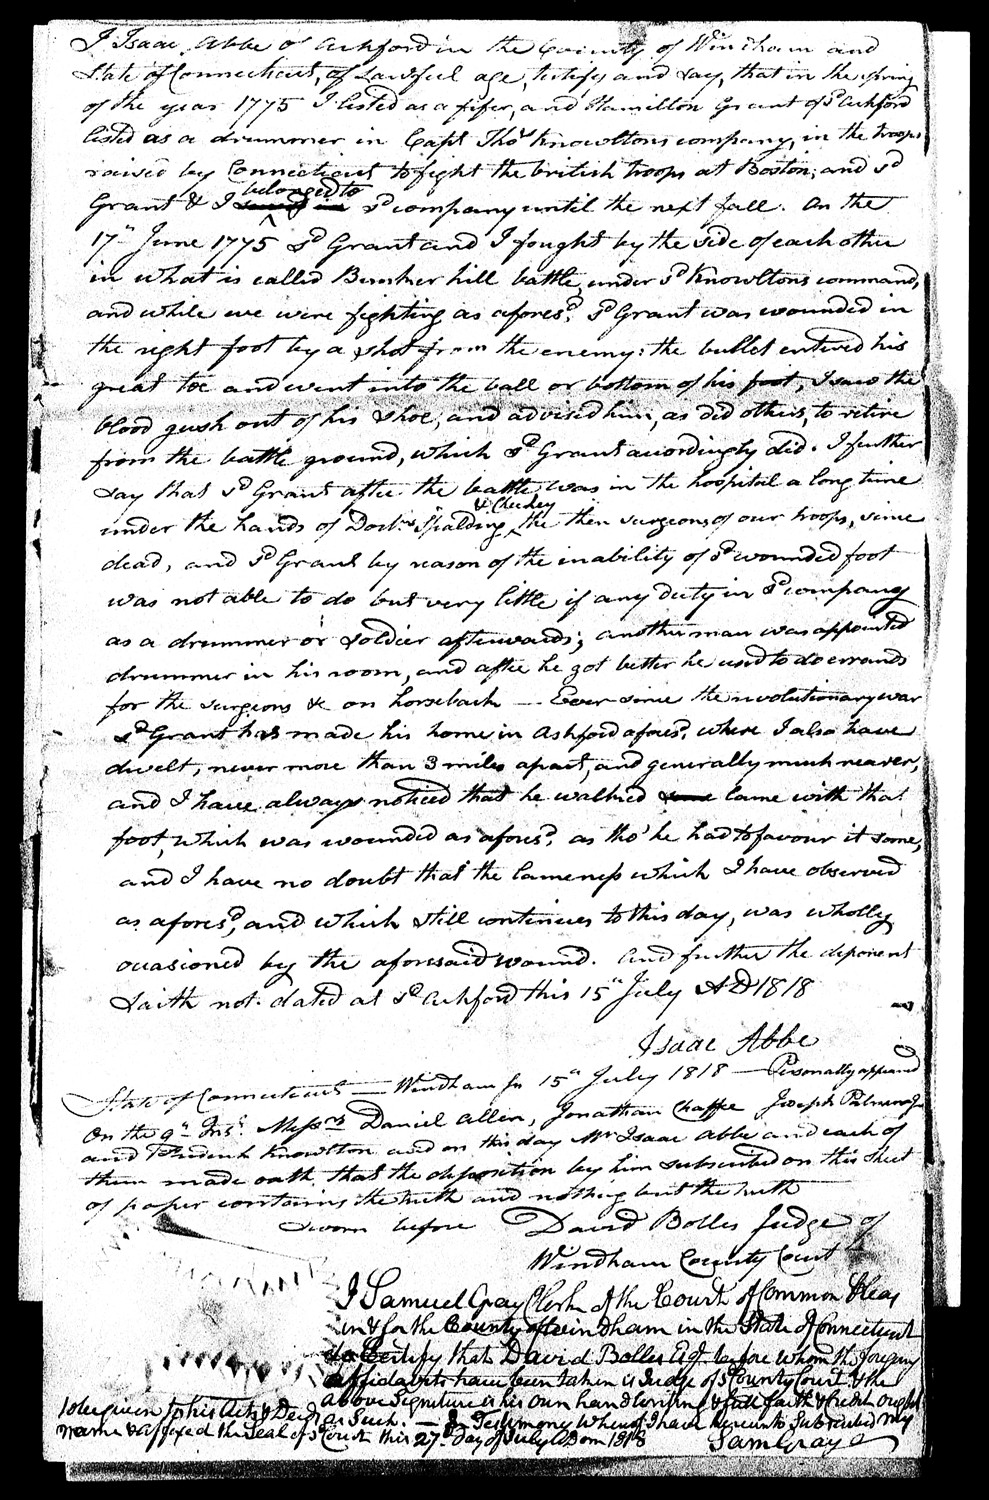 I Isaac Abbe of Ashford in the County of Windham and
State of Connecticut, of Lawful age, testify and say, that in the spring
of the year 1775 I listed as a fifer, and Hamilton Grant of sd Ashford
listed as a drummer in Capt Thos Knowltons company, in the troops
raised by Connecticut to fight the british troops at Boston; and sd
belonged to
Grant & I sd company until the next fall. On the
17th June 1775 sd Grant and I fought by the side of each other
in what is called Bunker hill battle, under sd Knowltons command,
and while we were fighting as aforesd. sd Grant was wounded in
the right foot by a shot from the enemy: the bullet entered his
great toe and went into the ball or bottom of his foot, I saw the
blood gush out of his shoe, and advised him, as did others, to retire
from the battle ground, which sd Grant acordingly did. I further
say that sd Grant after the battle was in the hospital a long time
& Cheeney
under the hands of Doctrs Spalding the then surgeons of our troops, since
dead, and sd Grant by reason of the inability of sd wounded foot
was not able to do but very little if any duty in sd company
as a drummer or soldier afterwards; another man was appointed
drummer in his room, and after he got better he used to do errands
for the surgeons &c on horseback — Ever since the revolutionary war
sd Grant has made his home in Ashford aforesd. where I also have
dwelt, never more than 3 miles apart, and generally much nearer,
and I have always noticed that he walked lame with that
foot, which was wounded as aforesd. as tho' he had to favour it some,
and I have no doubt that the lameness which I have observed
as aforesd, and which still continues to this day, was wholly
ocasioned by the aforesaid wound. And further the deponent
saith not. dated at sd Ashford this 15th July AD 1818
Isaac Abbe
State of Connecticut — Windham Ss 15th July 1818 — Personally appeared
On the 9th Inst. Messrs Daniel Allen, Jonathan Chaffee Joseph Palmer Jr
and Fredrick Knowlton and on this day Mr Isaac Abbe and each of
them made oath that the deposition by him subscribed on this sheet
of paper contains the truth and nothing but the truth
Sworn before David Bolles Judge of
Windham County Court
I Samuel Gray Clerk of the Court of Common Pleas
in & for the County of Windham in the State of Connecticut
do Certify that David Bolles Esqr. before whom the foregoing
affidavits have been taken is Judge of sd County Court, & the
above Signature is his own hand writing & full faith & Credit ought
to be given to his Acts & Deeds as Such. — In Testimony Whereof I have hereunto Subscribed my
name & affixed the Seal of sd Court this 27th day of July A Dom 1818
Sam Gray